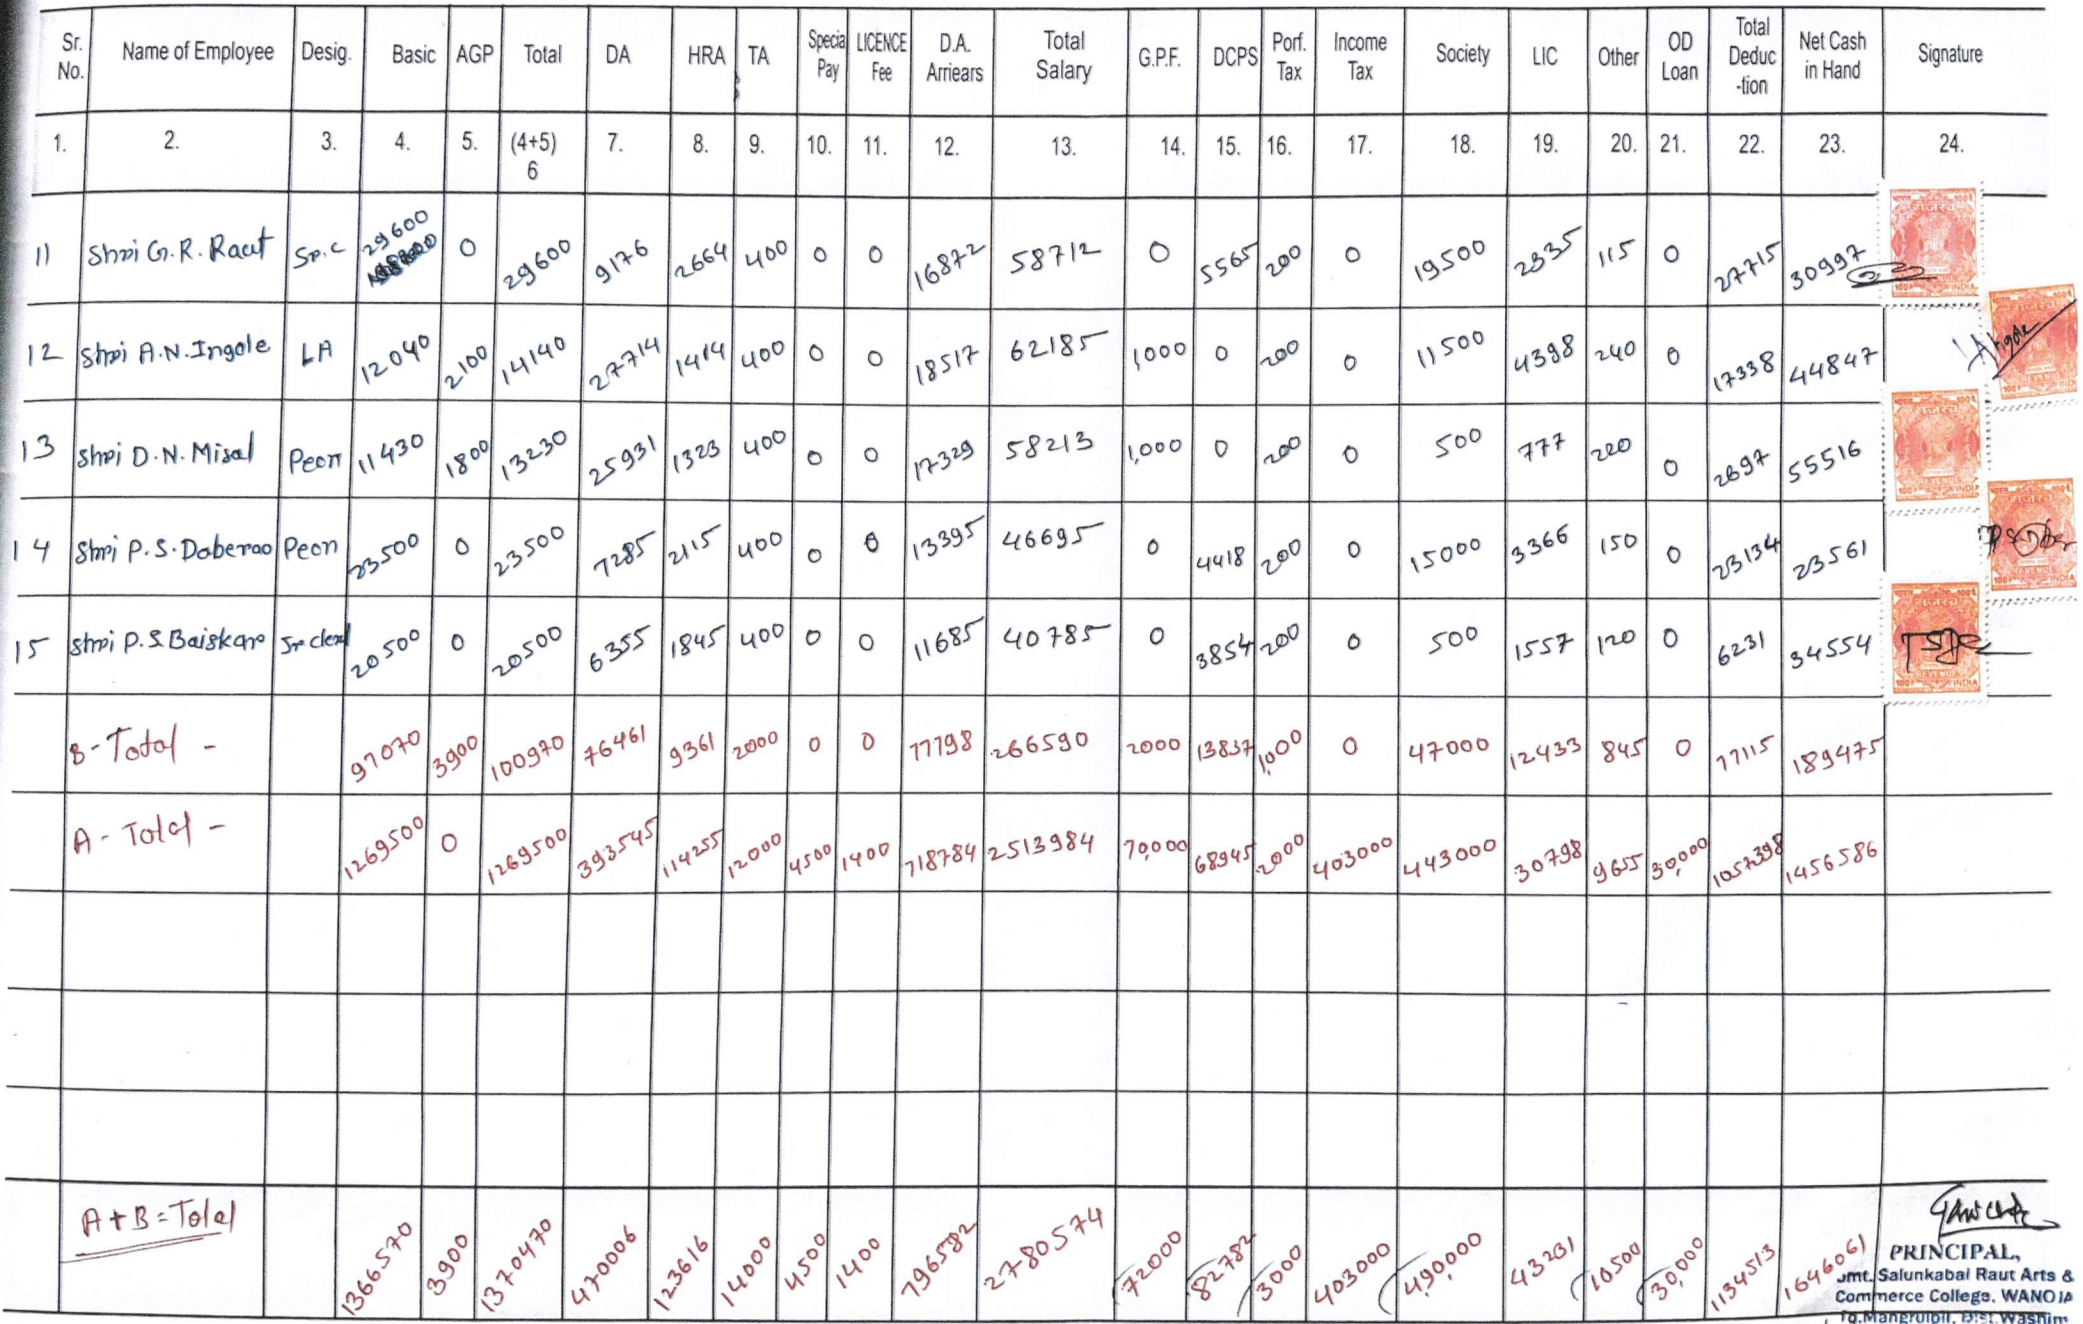 Sr. No. Name of Employee Desig. Basic AGP Total DA HRA TA Special Pay LICENCE Fee D.A. Arriears Total Salary G.P.F. DCPS Porf. Tax Income Tax Society LIC Other OD Loan Total Deduc -tion Net Cash in Hand Signature
1. 2. 3. 4. 5. (4+5) 6 7. 8. 9. 10. 11. 12. 13. 14. 15. 16. 17. 18. 19. 20. 21. 22. 23. 24.
11 Shri G.R. Raut Sr.c 29600 0 29600 9176 2664 400 0 0 16872 58712 0 5565 200 0 19500 2335 115 0 27715 30997
12 Shri A.N. Ingole LA 12040 2100 14140 27714 1414 400 0 0 18517 62185 1,000 0 200 0 11500 4398 240 0 17338 44847
13 Shri D.N. Misal Peon 11430 1800 13230 25931 1323 400 0 0 17329 58213 1,000 0 200 0 500 777 220 0 2697 55516
14 Shri P.S. Daberao Peon 23500 0 23500 7285 2115 400 0 0 13395 46695 0 4418 200 0 15000 3366 150 0 23134 23561
15 Shri P.S. Baiskar Jr clerk 20500 0 20500 6355 1845 400 0 0 11685 40785 0 3854 200 0 500 1557 120 0 6231 34554
B - Total - 97070 3900 100970 76461 9361 2000 0 0 77798 266590 2000 13837 1,000 0 47000 12433 845 0 77115 189475
A - Total - 1269500 0 1269500 393545 114255 12000 4500 1400 718784 2513984 70,000 68945 2000 403000 443000 30798 9655 30,000 1057398 1456586
A + B = Total 1366570 3900 1370470 470006 123616 14000 4500 1400 796582 2780574 72000 82782 3000 403000 490,000 43231 10500 30,000 1134513 1646061
PRINCIPAL,
Smt. Salunkabai Raut Arts &
Commerce College. WANOJA
Tq.Mangrulpir, Dist.Washim